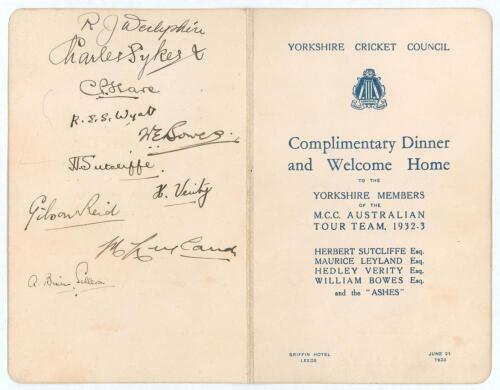 Charles Sykes
R. E. S. Wyatt
W E Bowes.
H Sutcliffe.
H. Verity
Gibson Reid
M Leyland
A. Brian Sellers
YORKSHIRE CRICKET COUNCIL
Complimentary Dinner
and Welcome Home
TO THE
YORKSHIRE MEMBERS
OF THE
M.C.C. AUSTRALIAN
TOUR TEAM, 1932-3
HERBERT SUTCLIFFE Esq.
MAURICE LEYLAND Esq.
HEDLEY VERITY Esq.
WILLIAM BOWES Esq.
and the "ASHES"
GRIFFIN HOTEL
LEEDS
JUNE 21
1933